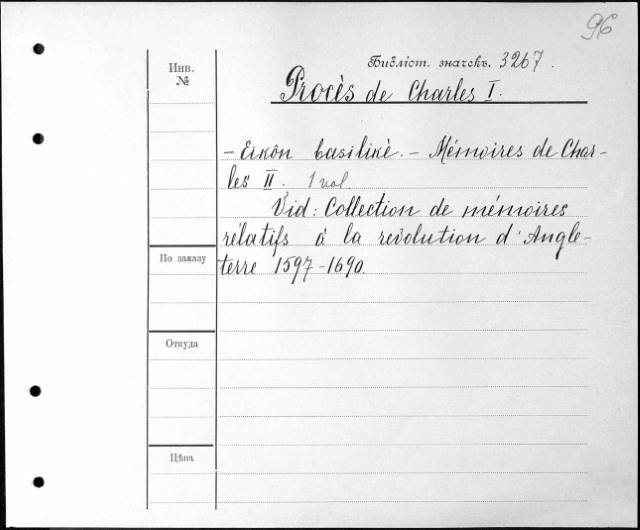 96
Инв.
№
Библіот. значекъ. 3267.
Procès de Charles I.
— Eikôn basilikè. — Mémoires de Char-
les II. 1 vol.
Vid: Collection de mémoires
rélatifs à la révolution d'Angle-
terre 1597-1690.
По заказу
Откуда
Цѣна